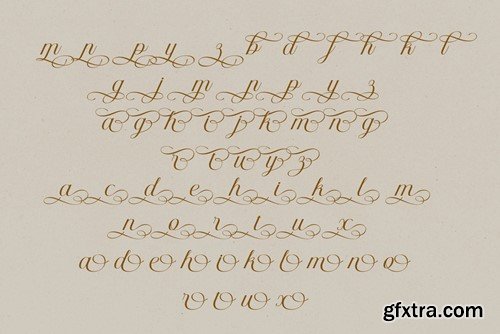 m n p y z b d f h k l
g j m n p y z
a g h i j k m n g
v t w y z
a c d e h i k l m
n o r t u x
a d e h i k l m n o
r v u x
gfxtra.com